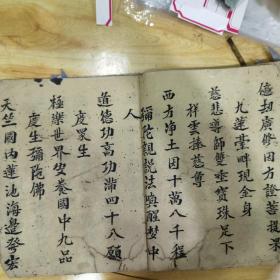 億劫广修因方證菩提果
九蓮臺畔現金身
慈悲導師雙垂寶珠足下
祥雲捧慈尊
西方净土因十萬八千程
彌陀親說法喚醒夢中
人
道德功高功滿四十八願
度衆生
極樂世界安養國中九品
度生彌陀佛
天竺國內蓮池海邊發宏